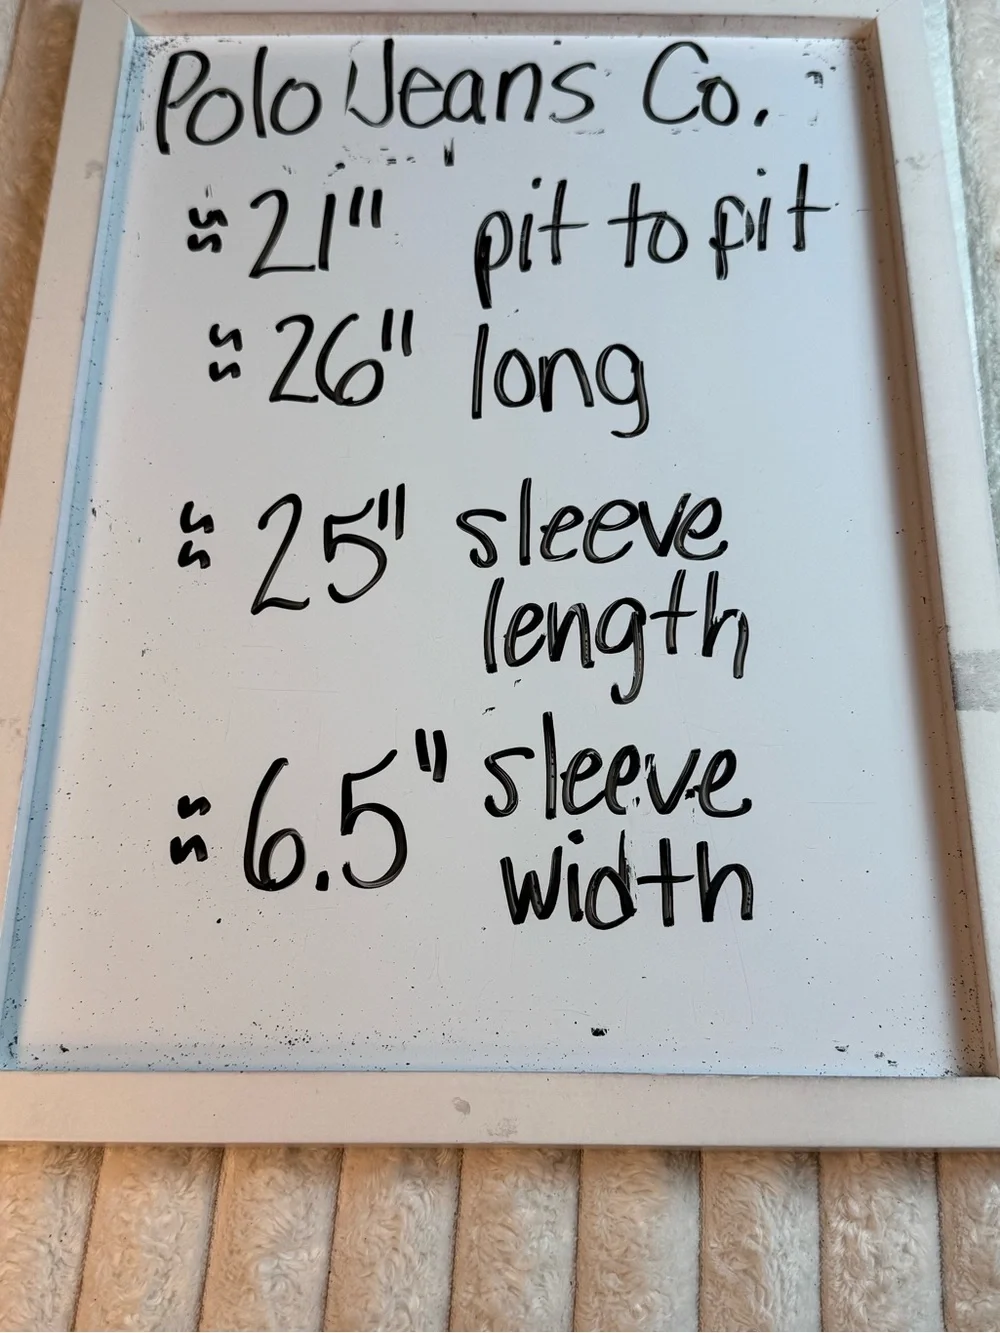 Polo Jeans Co.
≈ 21" pit to pit
≈ 26" long
≈ 25" sleeve
length
≈ 6.5" sleeve
width